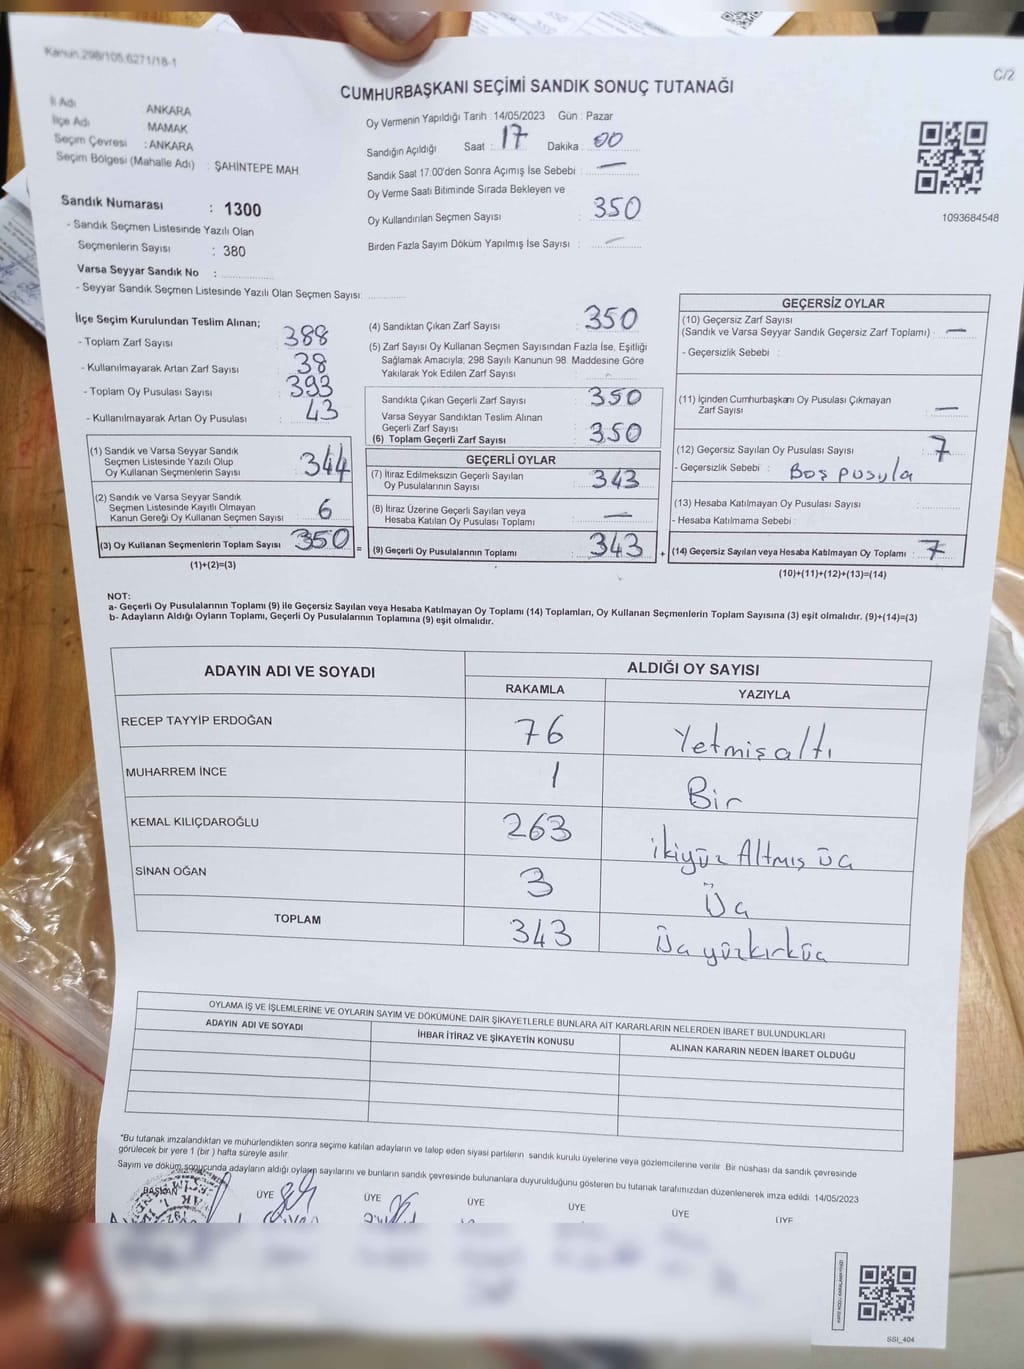 Kanun,298/105,6271/18-1
C/2
CUMHURBAŞKANI SEÇİMİ SANDIK SONUÇ TUTANAĞI
İl Adı ANKARA
İlçe Adı MAMAK
Seçim Çevresi : ANKARA
Seçim Bölgesi (Mahalle Adı) : ŞAHİNTEPE MAH
Sandık Numarası : 1300
- Sandık Seçmen Listesinde Yazılı Olan
Seçmenlerin Sayısı : 380
Varsa Seyyar Sandık No :
- Seyyar Sandık Seçmen Listesinde Yazılı Olan Seçmen Sayısı:
Oy Vermenin Yapıldığı Tarih : 14/05/2023 Gün : Pazar
Sandığın Açıldığı Saat : 17 Dakika : 00
Sandık Saat 17:00'den Sonra Açımış İse Sebebi : —
Oy Verme Saati Bitiminde Sırada Bekleyen ve
Oy Kullandırılan Seçmen Sayısı : 350
Birden Fazla Sayım Döküm Yapılmış İse Sayısı : —
1093684548
İlçe Seçim Kurulundan Teslim Alınan;
- Toplam Zarf Sayısı : 388
- Kullanılmayarak Artan Zarf Sayısı : 38
- Toplam Oy Pusulası Sayısı : 393
- Kullanılmayarak Artan Oy Pusulası : 43
(1) Sandık ve Varsa Seyyar Sandık
Seçmen Listesinde Yazılı Olup
Oy Kullanan Seçmenlerin Sayısı : 344
(2) Sandık ve Varsa Seyyar Sandık
Seçmen Listesinde Kayıtlı Olmayan
Kanun Gereği Oy Kullanan Seçmen Sayısı : 6
(3) Oy Kullanan Seçmenlerin Toplam Sayısı : 350
(1)+(2)=(3)
(4) Sandıktan Çıkan Zarf Sayısı : 350
(5) Zarf Sayısı Oy Kullanan Seçmen Sayısından Fazla İse, Eşitliği
Sağlamak Amacıyla; 298 Sayılı Kanunun 98. Maddesine Göre
Yakılarak Yok Edilen Zarf Sayısı :
Sandıkta Çıkan Geçerli Zarf Sayısı : 350
Varsa Seyyar Sandıktan Teslim Alınan
Geçerli Zarf Sayısı :
(6) Toplam Geçerli Zarf Sayısı : 350
GEÇERLİ OYLAR
(7) İtiraz Edilmeksizin Geçerli Sayılan
Oy Pusulalarının Sayısı : 343
(8) İtiraz Üzerine Geçerli Sayılan veya
Hesaba Katılan Oy Pusulası Toplamı : —
= (9) Geçerli Oy Pusulalarının Toplamı : 343
GEÇERSİZ OYLAR
(10) Geçersiz Zarf Sayısı
(Sandık ve Varsa Seyyar Sandık Geçersiz Zarf Toplamı) : —
- Geçersizlik Sebebi :
(11) İçinden Cumhurbaşkanı Oy Pusulası Çıkmayan
Zarf Sayısı : —
(12) Geçersiz Sayılan Oy Pusulası Sayısı : 7
- Geçersizlik Sebebi : Boş pusula
(13) Hesaba Katılmayan Oy Pusulası Sayısı :
- Hesaba Katılmama Sebebi :
+ (14) Geçersiz Sayılan veya Hesaba Katılmayan Oy Toplamı : 7
(10)+(11)+(12)+(13)=(14)
NOT:
a- Geçerli Oy Pusulalarının Toplamı (9) ile Geçersiz Sayılan veya Hesaba Katılmayan Oy Toplamı (14) Toplamları, Oy Kullanan Seçmenlerin Toplam Sayısına (3) eşit olmalıdır. (9)+(14)=(3)
b- Adayların Aldığı Oyların Toplamı, Geçerli Oy Pusulalarının Toplamına (9) eşit olmalıdır.
ADAYIN ADI VE SOYADI ALDIĞI OY SAYISI
RAKAMLA YAZIYLA
RECEP TAYYİP ERDOĞAN 76 Yetmiş altı
MUHARREM İNCE 1 Bir
KEMAL KILIÇDAROĞLU 263 ikiyüz Altmış üç
SİNAN OĞAN 3 Üç
TOPLAM 343 Üç yüzkırküç
OYLAMA İŞ VE İŞLEMLERİNE VE OYLARIN SAYIM VE DÖKÜMÜNE DAİR ŞİKAYETLERLE BUNLARA AİT KARARLARIN NELERDEN İBARET BULUNDUKLARI
ADAYIN ADI VE SOYADI İHBAR İTİRAZ VE ŞİKAYETİN KONUSU ALINAN KARARIN NEDEN İBARET OLDUĞU
*Bu tutanak imzalandıktan ve mühürlendikten sonra seçime katılan adayların ve talep eden siyasi partilerin sandık kurulu üyelerine veya gözlemcilerine verilir. Bir nüshası da sandık çevresinde
görülecek bir yere 1 (bir) hafta süreyle asılır.
Sayım ve döküm sonucunda adayların aldığı oyların sayılarını ve bunların sandık çevresinde bulunanlara duyurulduğunu gösteren bu tutanak tarafımızdan düzenlenerek imza edildi. 14/05/2023
BAŞKAN ÜYE ÜYE ÜYE ÜYE ÜYE ÜYE
SSI_404